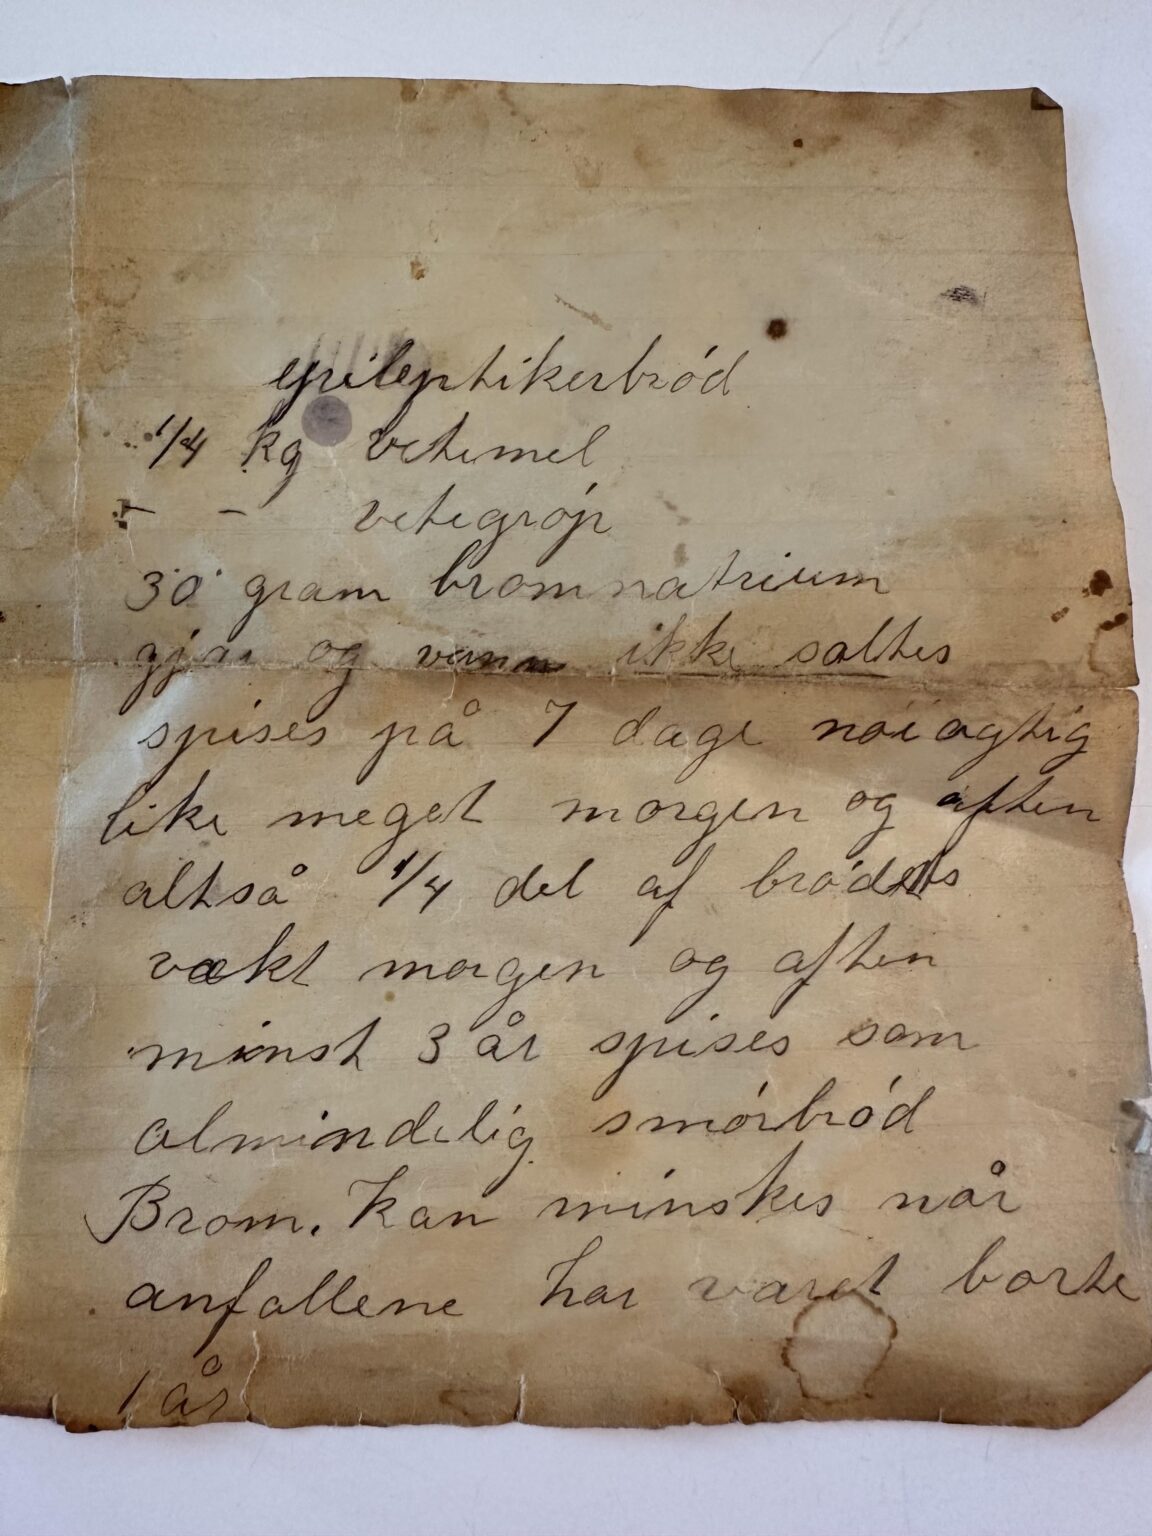 epileptikerbród
1/4 kg vetemel
- - vetegróp
30 gram bromnatrium
gjær og vann ikke saltes
spises på 7 dage nóiagtig
like meget morgen og aften
altså 1/4 del af bródets
vækt morgen og aften
minst 3 år spises som
almindelig smórbród
Brom. kan minskes når
anfallene har været borte
1 år